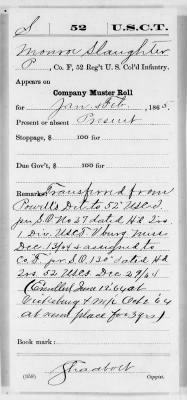 S 52 U.S.C.T.
Monroe Slaughter
P, Co. F, 52 Reg't U. S. Col'd Infantry.
Appears on
Company Muster Roll
for Jan & Feb, 1865.
Present or absent Present
Stoppage, $ 100 for
Due Gov't, $ 100 for
Remarks: Transferred from
Powell's Det. to 52" USC.I.
per S.O. No 27 dated Hd 2rs.
1 Div. USCT Vburg Miss
Dec 13/64 & assigned to
Co F. pr S.O. 130 dated Hd
2rs. 52 USCI. Dec 29/64
(Enrolled June 12 64 at
Vicksburg & M/I Oct 64
at same place for 3 yrs)
Book mark:
(358) Copyist.